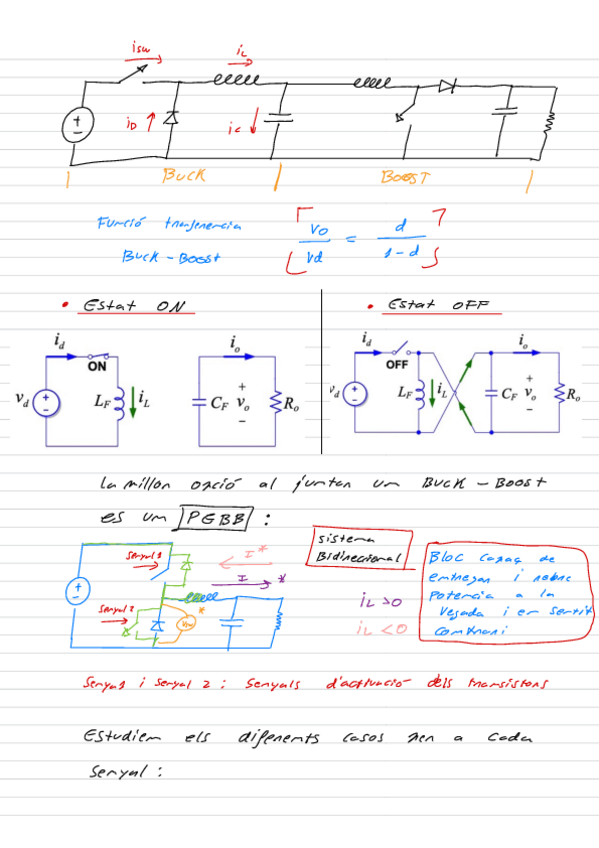 isw
iL
iD
ic
BUCK
BOOST
Funció transferencia
Buck-Boost
Vo / Vd = d / 1-d
• Estat ON
• Estat OFF
id
ON
vd
LF
iL
io
CF
vo
Ro
id
OFF
vd
LF
iL
io
CF
vo
Ro
La millor opció al juntar un Buck-Boost
es un PGBB :
Senyal 1
Senyal 2
I*
I
*
*
Sistema
Bidireccional
iL>0
iL<0
Bloc capaç de
entregar i rebre
Potencia a la
Vegada i en sentit
Contrari
Senyal i Senyal 2 : Senyals d'actuació dels transistors
Estudiem els diferents casos per a cada
senyal :